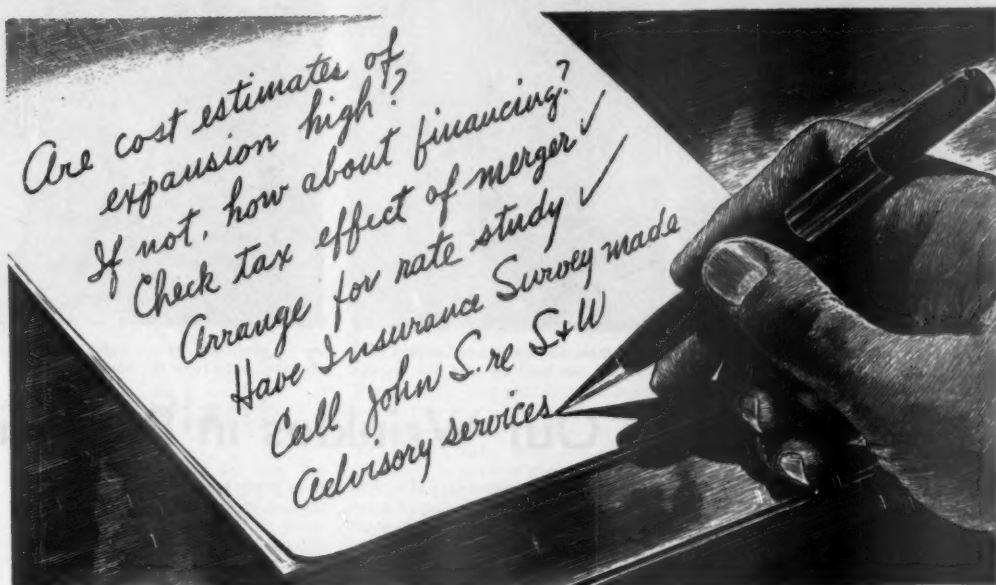 Are cost estimates of
expansion high?
If not, how about financing?
Check tax effect of merger ✓
Arrange for rate study ✓
Have Insurance Survey made
Call John S. re S+W
Advisory services